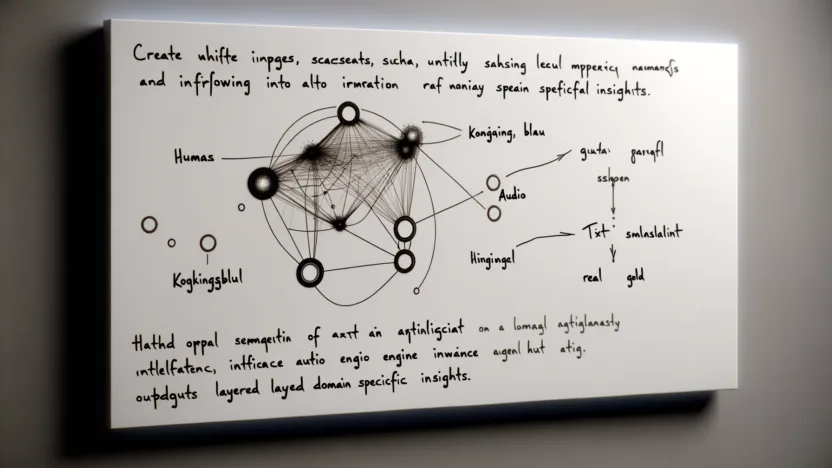 Create whifte inpges, scacseats, sucha, untilly sahsing lecul mppericy naumancfs
and infrfowing into alto irmration raf naniay speain speficfal insights.
Humas
Kongaing, blau
guuta: parqfl
sshpen
Audio
Txt: smlaslalint
Hingingal
real gold
Kogkingsblul
Hathd oppal semagetin of axtt an aptinligciat on a lomagl agtiglanasty
intlelfatenc, intficace autio engio engine inwance aigenl hut atig.
oupdguts layered layed domain specicfic insights.